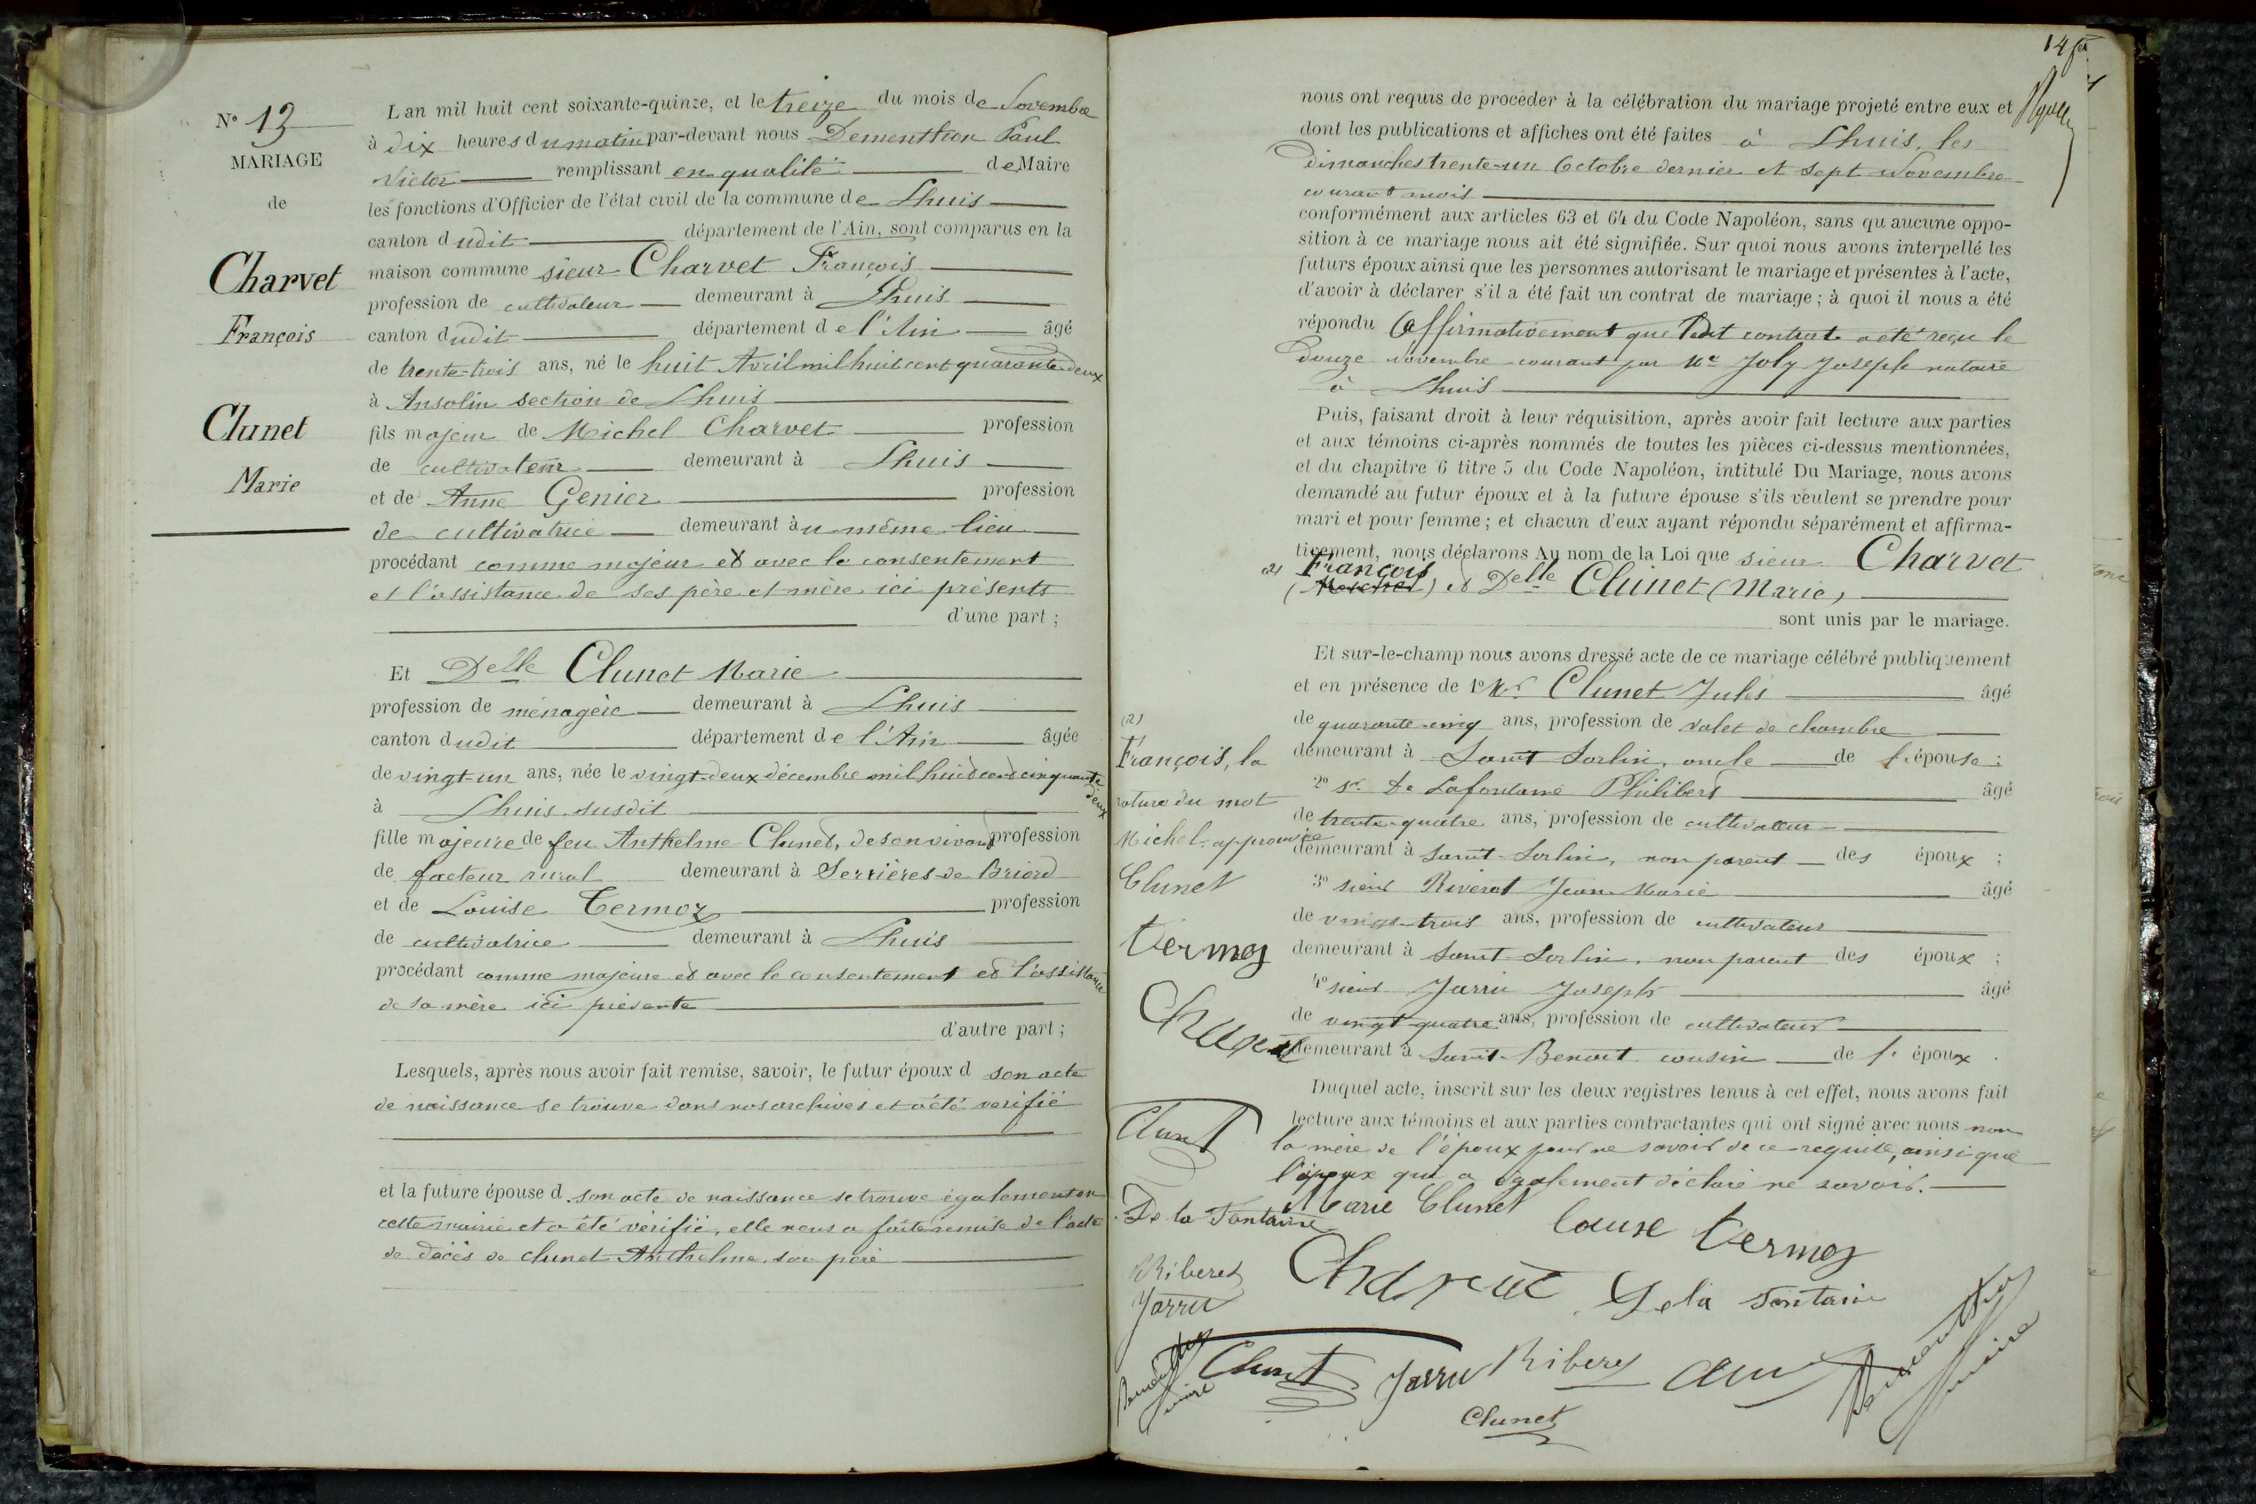 N° 13
MARIAGE
de
Charvet
François
Clunet
Marie
L'an mil huit cent soixante-quinze, et le treize du mois de Novembre
à dix heures du matin par-devant nous Dementhon Paul
Victor remplissant en qualité de Maire
les fonctions d'Officier de l'état civil de la commune de Lhuis
canton dudit département de l'Ain, sont comparus en la
maison commune sieur Charvet François
profession de cultivateur demeurant à Lhuis
canton dudit département de l'Ain âgé
de trente-trois ans, né le huit Avril mil huit cent quarante-deux
à Ansolin section de Lhuis
fils majeur de Michel Charvet profession
de cultivateur demeurant à Lhuis
et de Anne Genier profession
de cultivatrice demeurant au même lieu
procédant comme majeur et avec le consentement
et l'assistance de ses père et mère ici présents
d'une part ;
Et Delle Clunet Marie
profession de ménagère demeurant à Lhuis
canton dudit département de l'Ain âgée
de vingt-un ans, née le vingt-deux décembre mil huit cent cinquante-deux
à Lhuis susdit
fille majeure de feu Anthelme Clunet, de son vivant profession
de facteur rural demeurant à Serrières-de Briord
et de Louise Termoz profession
de cultivatrice demeurant à Lhuis
procédant comme majeure et avec le consentement et l'assistance
de sa mère ici présente
d'autre part ;
Lesquels, après nous avoir fait remise, savoir, le futur époux d son acte
de naissance se trouve dans nos archives et a été vérifié
et la future épouse d son acte de naissance se trouve également en
cette mairie et a été vérifié, elle nous a fait remise de l'acte
de décès de Clunet Anthelme son père
14
nous ont requis de procéder à la célébration du mariage projeté entre eux et
dont les publications et affiches ont été faites à Lhuis, les
dimanches trente-un Octobre dernier et sept Novembre
courant mois
conformément aux articles 63 et 64 du Code Napoléon, sans qu'aucune oppo-
sition à ce mariage nous ait été signifiée. Sur quoi nous avons interpellé les
futurs époux ainsi que les personnes autorisant le mariage et présentes à l'acte,
d'avoir à déclarer s'il a été fait un contrat de mariage ; à quoi il nous a été
répondu affirmativement que ledit contrat a été reçu le
douze novembre courant par Me Joly Joseph notaire
à Lhuis
Puis, faisant droit à leur réquisition, après avoir fait lecture aux parties
et aux témoins ci-après nommés de toutes les pièces ci-dessus mentionnées,
et du chapitre 6 titre 5 du Code Napoléon, intitulé Du Mariage, nous avons
demandé au futur époux et à la future épouse s'ils veulent se prendre pour
mari et pour femme ; et chacun d'eux ayant répondu séparément et affirma-
tivement, nous déclarons Au nom de la Loi que sieur Charvet
(2) François
(Michel) et Delle Clunet (Marie)
sont unis par le mariage.
Et sur-le-champ nous avons dressé acte de ce mariage célébré publiquement
et en présence de 1° Mr Clunet Jules âgé
de quarante-cinq ans, profession de valet de chambre
demeurant à Saint Sorlin, oncle de l'épouse ;
2° sr De Lafontaine Philibert âgé
de trente-quatre ans, profession de cultivateur
demeurant à Saint-Sorlin, non parent des époux ;
3° sieur Riveret Jean-Marie âgé
de vingt-trois ans, profession de cultivateur
demeurant à Saint-Sorlin, non parent des époux ;
4° sieur Jarru Joseph âgé
de vingt-quatre ans, profession de cultivateur
demeurant à Saint-Benoit cousin de l'époux.
Duquel acte, inscrit sur les deux registres tenus à cet effet, nous avons fait
lecture aux témoins et aux parties contractantes qui ont signé avec nous non
la mère de l'époux pour ne savoir de ce requise, ainsi que
l'époux qui a également déclaré ne savoir.
Marie Clunet
Louise Termoz
Charvet De la Fontaine
Clunet Jarru Ribery
Clunet
(2)
François, la
rature du mot
Michel, approuvée
Clunet
Termoz
Charvet
Clunet
De la Fontaine
Riberet
Jarru
Dementhon
maire